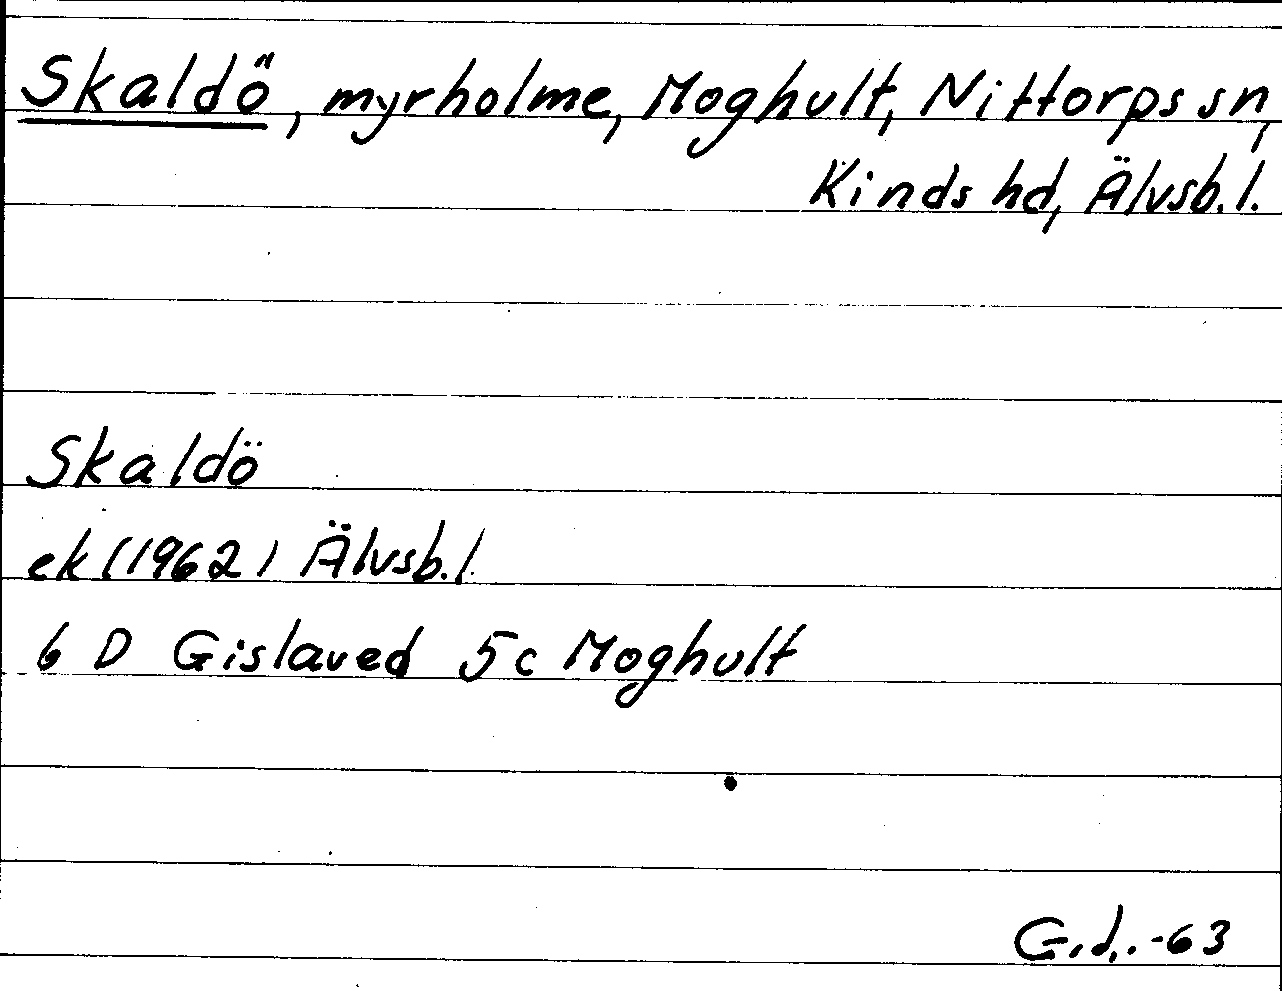 Skaldö, myrholme, Moghult, Nittorps sn,
Kinds hd, Älvsb. l.
Skaldö
ek (1962) Älvsb. l.
6 D Gislaved 5c Moghult
G.d. -63